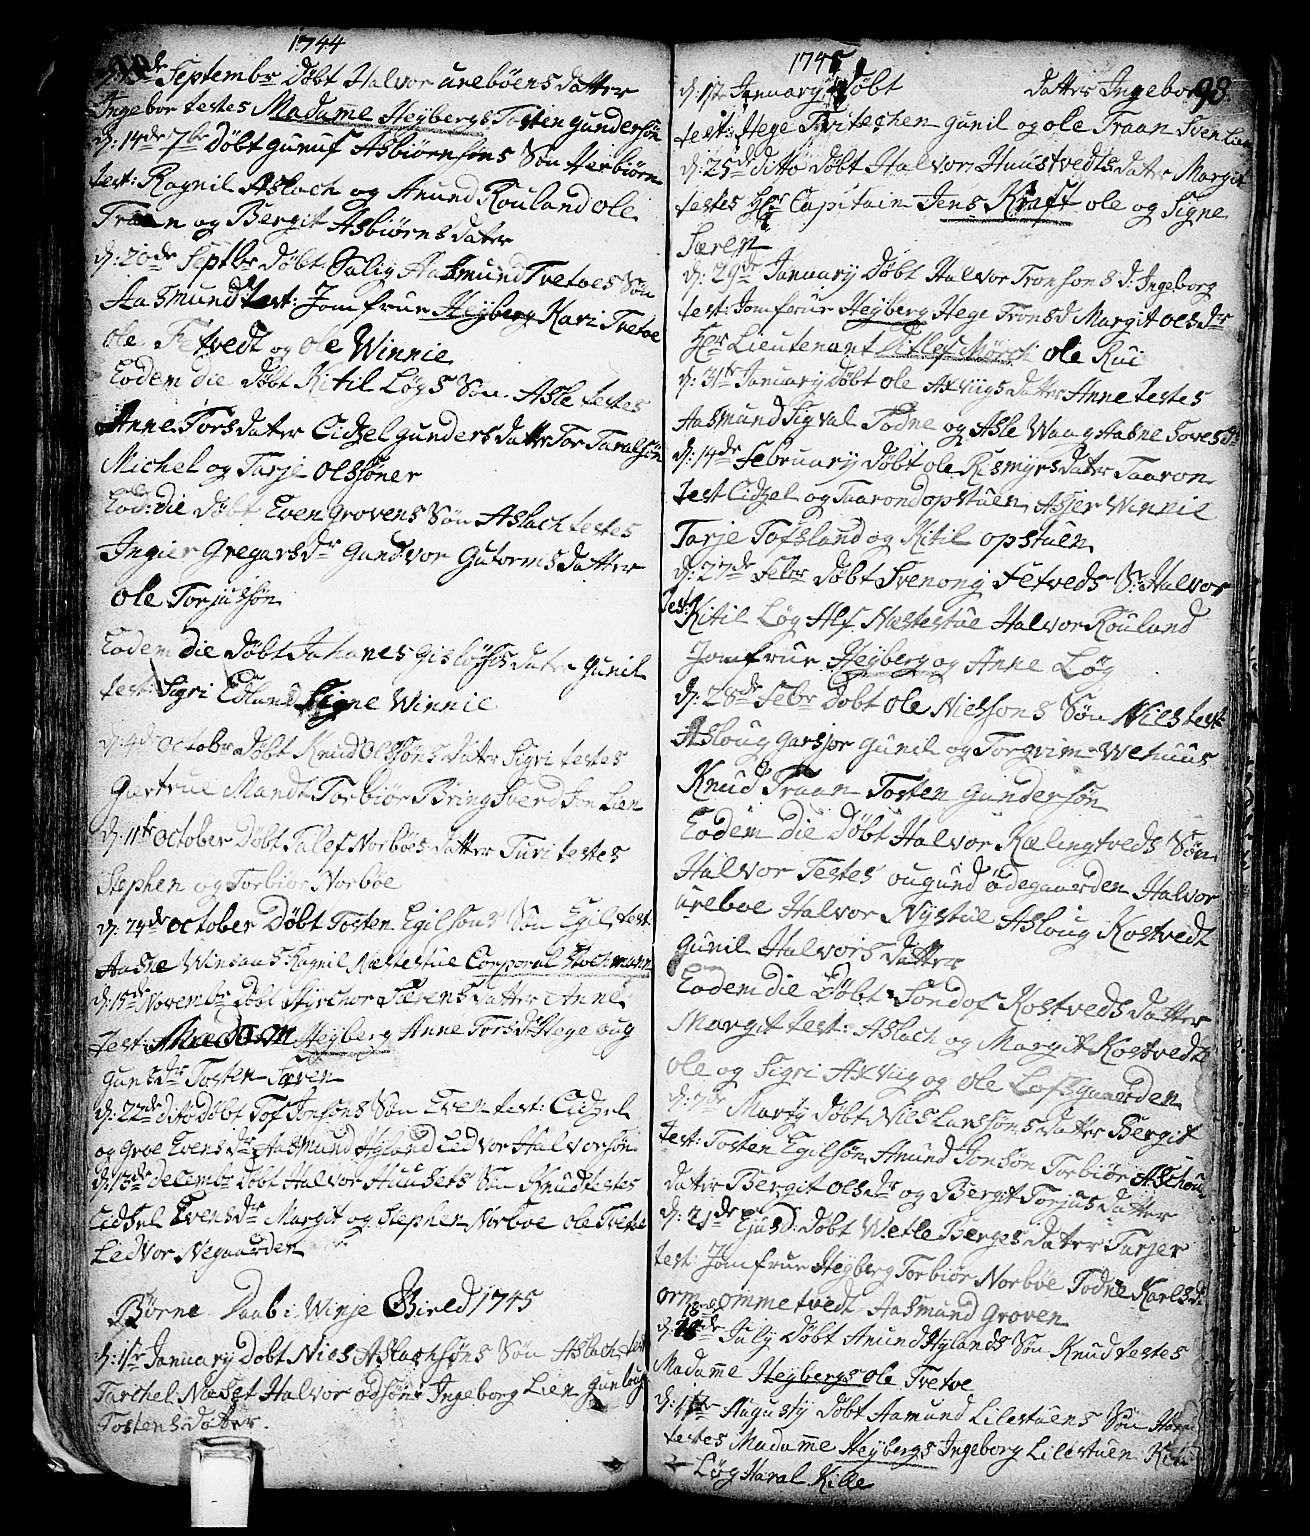 1744
Septembr Døbt Halvor urebøens datter
Ingebor testes Madame Heÿbergs Tosten gundersøn
d: 14de 7br Døbt gunuf Asbiørnsøns Søn Herbiørn
test: Ragnil Aslach og Anund Rouland ole
Traan og Bergit Asbiørnsdater
d: 20de Septbr døbt Salig Aasmund Tvetoes Søn
Aasmund test: Jomfrue Heÿberg Kari Tvetoe
ole Fetvedt og ole Winnie
Eodem die døbt Kitil Løgs Søn Asle testes
Anne Torsdater Cidzel gundersdatter Tor Taralsøn
Michel og Tarje olssøner
Eod: die Døbt Even grovens Søn Aslach testes
Ingier Gregarsdr gundvor gutormsdatter
ole Torjussøn
Eodem die Døbt Johanes gisløfs dater gunil
test: Sigri Edland Signe Winnie
d: 4de octobr døbt Knud olssøns dater Sigri testes
Giertrue Mandt Torbiør Bringsverd Jon Lien
d: 11te october Døbt Talef Norbøes datter Turi testes
Stephen og Torbiør Norbøe
d: 24de october Døbt Tosten Egilsøns Søn Egil test:
Aasne Winsaas Ragnil Næstestue Corporal Stochmann
d: 15de Novembr døbt Styrchor Særens datter Anne
test: Madam Heÿberg Anne Torsdr Hege oug
gunsdr Tosten Særen
d: 22de dito døbt Tof Jonsøns Søn Even test: Cidzel
og groe Evensdr Aasmund Hyland Ledvor Halvorsøn
d: 13de decembr døbt Halvor Huusets Søn Knud testes
Cidzel Evensdr Margit og Stephen Norboe ole Tvetoe
Ledvor Negaarden
Børne Daab i Winje Gield 1745
d: 1ste January døbt Niels Aslachsøns Søn Aslach test
Tarchel Næset Halvor odsøn Ingeborg Lien gunloug
Tostensdatter.
1745
98.
d: 1ste January Døbt datter Ingebor
test: Hege Tvitechen gunil og ole Traan Sven Lien
d: 25de ditto døbt Halvor Huustvedts dater Margit
testes Hr Capitain Jens Kraft ole og Signe
Særen
d: 29de January Døbt Halvor Tronsøns d: Ingeborg
test: Jomfrue Heÿberg Hege Tronsd Margit olsdr
Hr Lieutenant Ditlef Mørch ole Rui
d: 31te January døbt ole Axviigs datter Anne testes
Aasmund Sigval Todne og Asle Waag Aasne Sovesdr
d: 14de February døbt ole Rismyrs dater Taaron
test Cidzel og Taarond opstuen Asjer Winnie
Tarje Tofsland og Kitil opstuen
d: 27de Febr døbt Svenong Fetveds S: Halvor
test: Kitil Løg Alf Næstestue Halvor Rouland
Jomfrue Heÿberg og Anne Løg
d: 28de Febr døbt ole Nielsøns Søn Niels test:
Asloug garsjor gunil og Torgrim Wehuus
Knud Traan Tosten gundersøn
Eodem die døbt Halvor Rælingtveds Søn
Halvor Testes ougund ødegaarden Halvor
ureboe Halvor Nystue Asloug Kostvedt
gunil Halvorsdatter
Eodem die Døbt Sondof Kostveds datter
Margit test: Aslach og Margit Kostvedt
ole og Sigri Axviig og ole Loftsgaarden
d: 7de Marty døbt Niels Larssøns dater Bergit
test: Tosten Egilsøn Amund Jonsøn Torbiør Aschou
dater Bergit olsdr og Bergit Torjusdatter
d: 21de Ejusd: døbt Wetle Berges dater Tarjer
test: Jomfrue Heÿberg Torbiør Norbøe Todne Karlsd:
orm ommetvedt Aasmund Groven
d: 18de July Døbt Anund Hylands Søn Knud testes
Madame Heÿbergs ole Tvetoe
d: Augusty døbt Aamund Lilestuens Søn
testes Madame Heÿbergs Ingeborg Lilestuen
Løg Haral Kille